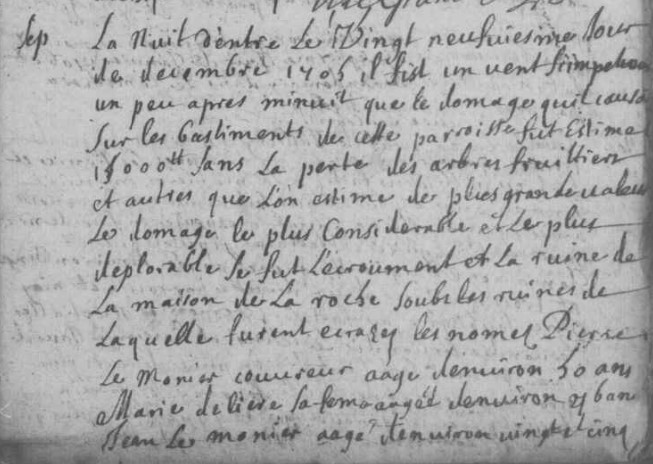 Sep
La Nuit dentre Le Vingt neufuiesme Jour
de decembre 1705 il fist un vent sy impetueu
un peu apres minuit que le domage quil causa
Sur les bastiments de cette parroisse fut Estimé
15000tt Sans La perte des arbres fruittiers
et autres que Lon estime de plus grande ualeur
Le domage le plus Considerable et Le plus
deplorable Se fut Lecroument et La ruine de
La maison de La roche Soubs les ruines de
Laquelle furent ecrazez les nomez Pierre
Le Monier couureur aagé denuiron 50 ans
Marie de liere Sa feme aagée denuiron
Jean Le monier aagé denuiron uingt et cinq